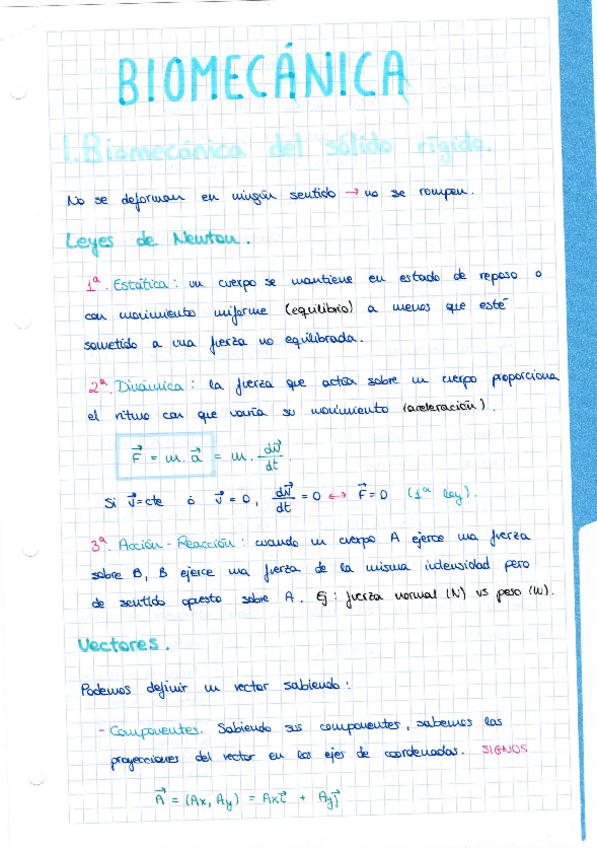 BIOMECÁNICA
1. Biomecánica del sólido rígido.
No se deforman en ningún sentido → no se rompen.
Leyes de Newton.
1ª. Estática: un cuerpo se mantiene en estado de reposo o
con movimiento uniforme (equilibrio) a menos que esté
sometido a una fuerza no equilibrada.
2ª. Dinámica: la fuerza que actúa sobre un cuerpo proporciona
el ritmo con que varía su movimiento (aceleración).
F⃗ = m. a⃗ = m. dv⃗/dt.
Si v⃗=cte ó v⃗ = 0, dv⃗/dt = 0 ↔ F⃗ = 0 (1ª ley).
3ª. Acción - Reacción: cuando un cuerpo A ejerce una fuerza
sobre B, B ejerce una fuerza de la misma intensidad pero
de sentido opuesto sobre A. Ej: fuerza normal (N) vs peso (W).
Vectores.
Podemos definir un vector sabiendo:
- Componentes. Sabiendo sus componentes, sabemos las
proyecciones del vector en los ejes de coordenadas. SIGNOS
A⃗ = (Ax, Ay) = Ax i⃗ + Ay j⃗